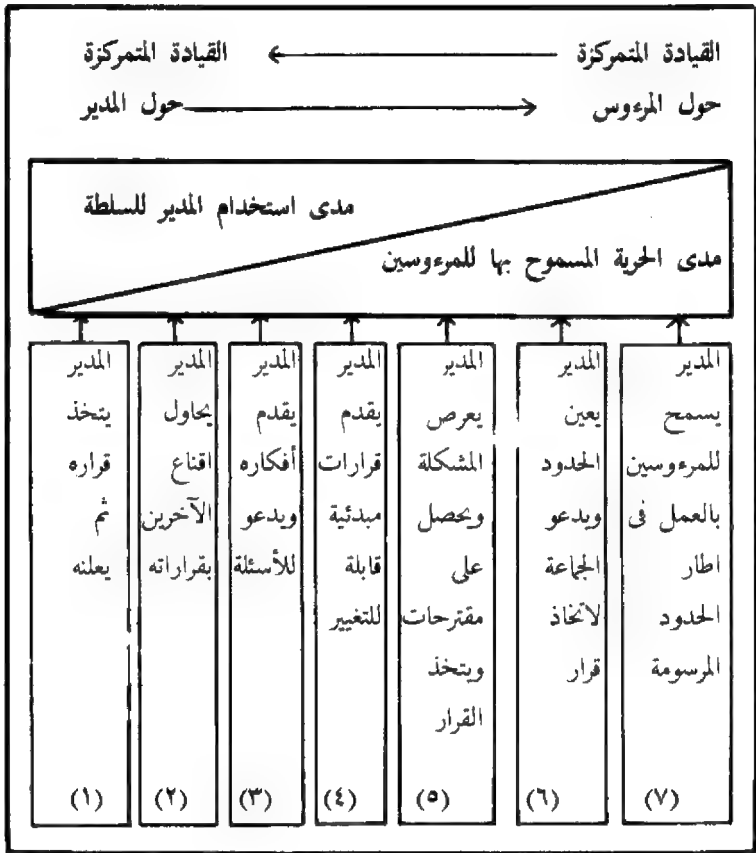 القيادة المتمركزة ← القيادة المتمركزة
حول المرءوس → حول المدير
مدى استخدام المدير للسلطة
مدى الحرية المسموح بها للمرءوسين
المدير
يسمح
للمرءوسين
بالعمل فى
اطار
الحدود
المرسومة
(٧)
المدير
يعين
الحدود
ويدعو
الجماعة
لاتخاذ
قرار
(٦)
المدير
يعرض
المشكلة
ويحصل
على
مقترحات
ويتخذ
القرار
(٥)
المدير
يقدم
قرارات
مبدئية
قابلة
للتغيير
(٤)
المدير
يقدم
أفكاره
ويدعو
للأسئلة
(٣)
المدير
يحاول
اقناع
الآخرين
بقراراته
(٢)
المدير
يتخذ
قراره
ثم
يعلنه
(١)